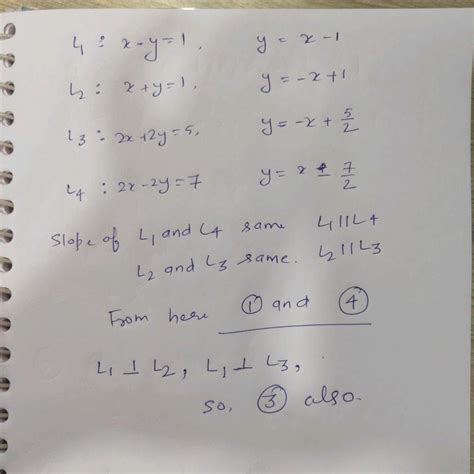 L1 : x-y=1, y = x-1
L2 : x+y=1, y = -x+1
L3 : 2x+2y=5, y = -x + 5/2
L4 : 2x-2y=7 y = x - 7/2
Slope of L1 and L4 same L1||L4
L2 and L3 same. L2||L3
From here ① and ④
L1 ⊥ L2, L1 ⊥ L3,
so, ③ also.